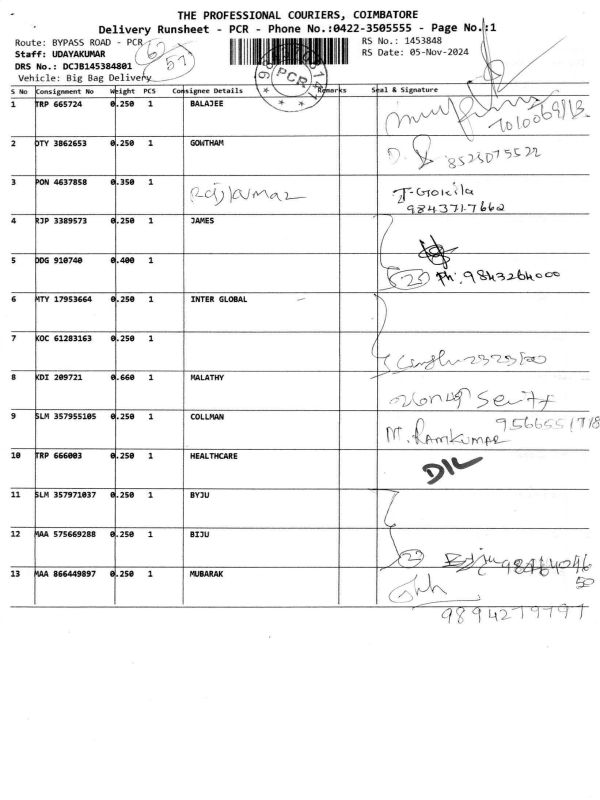 THE PROFESSIONAL COURIERS, COIMBATORE
Delivery Runsheet - PCR - Phone No.:0422-3505555 - Page No.:1
Route: BYPASS ROAD - PCR
RS No.: 1453848
Staff: UDAYAKUMAR
RS Date: 05-Nov-2024
DRS No.: DCJB145384801
57
Vehicle: Big Bag Delivery
PCR
S No Consignment No Weight PCS Consignee Details Remarks Seal & Signature
1 TRP 665724 0.250 1 BALAJEE
2 OTY 3862653 0.250 1 GOWTHAM 8523075522
3 PON 4637858 0.350 1 Rajkumar T-Gokila
9843717662
4 RJP 3389573 0.250 1 JAMES
5 DDG 910740 0.400 1 Ph: 9843264000
6 MTY 17953664 0.250 1 INTER GLOBAL
7 KOC 61283163 0.250 1
8 KDI 209721 0.660 1 MALATHY
9 SLM 357955105 0.250 1 COLLMAN M. RAMKUMAR
10 TRP 666003 0.250 1 HEALTHCARE
11 SLM 357971037 0.250 1 BYJU
12 MAA 575669288 0.250 1 BIJU Biju
13 MAA 866449897 0.250 1 MUBARAK
9894279797